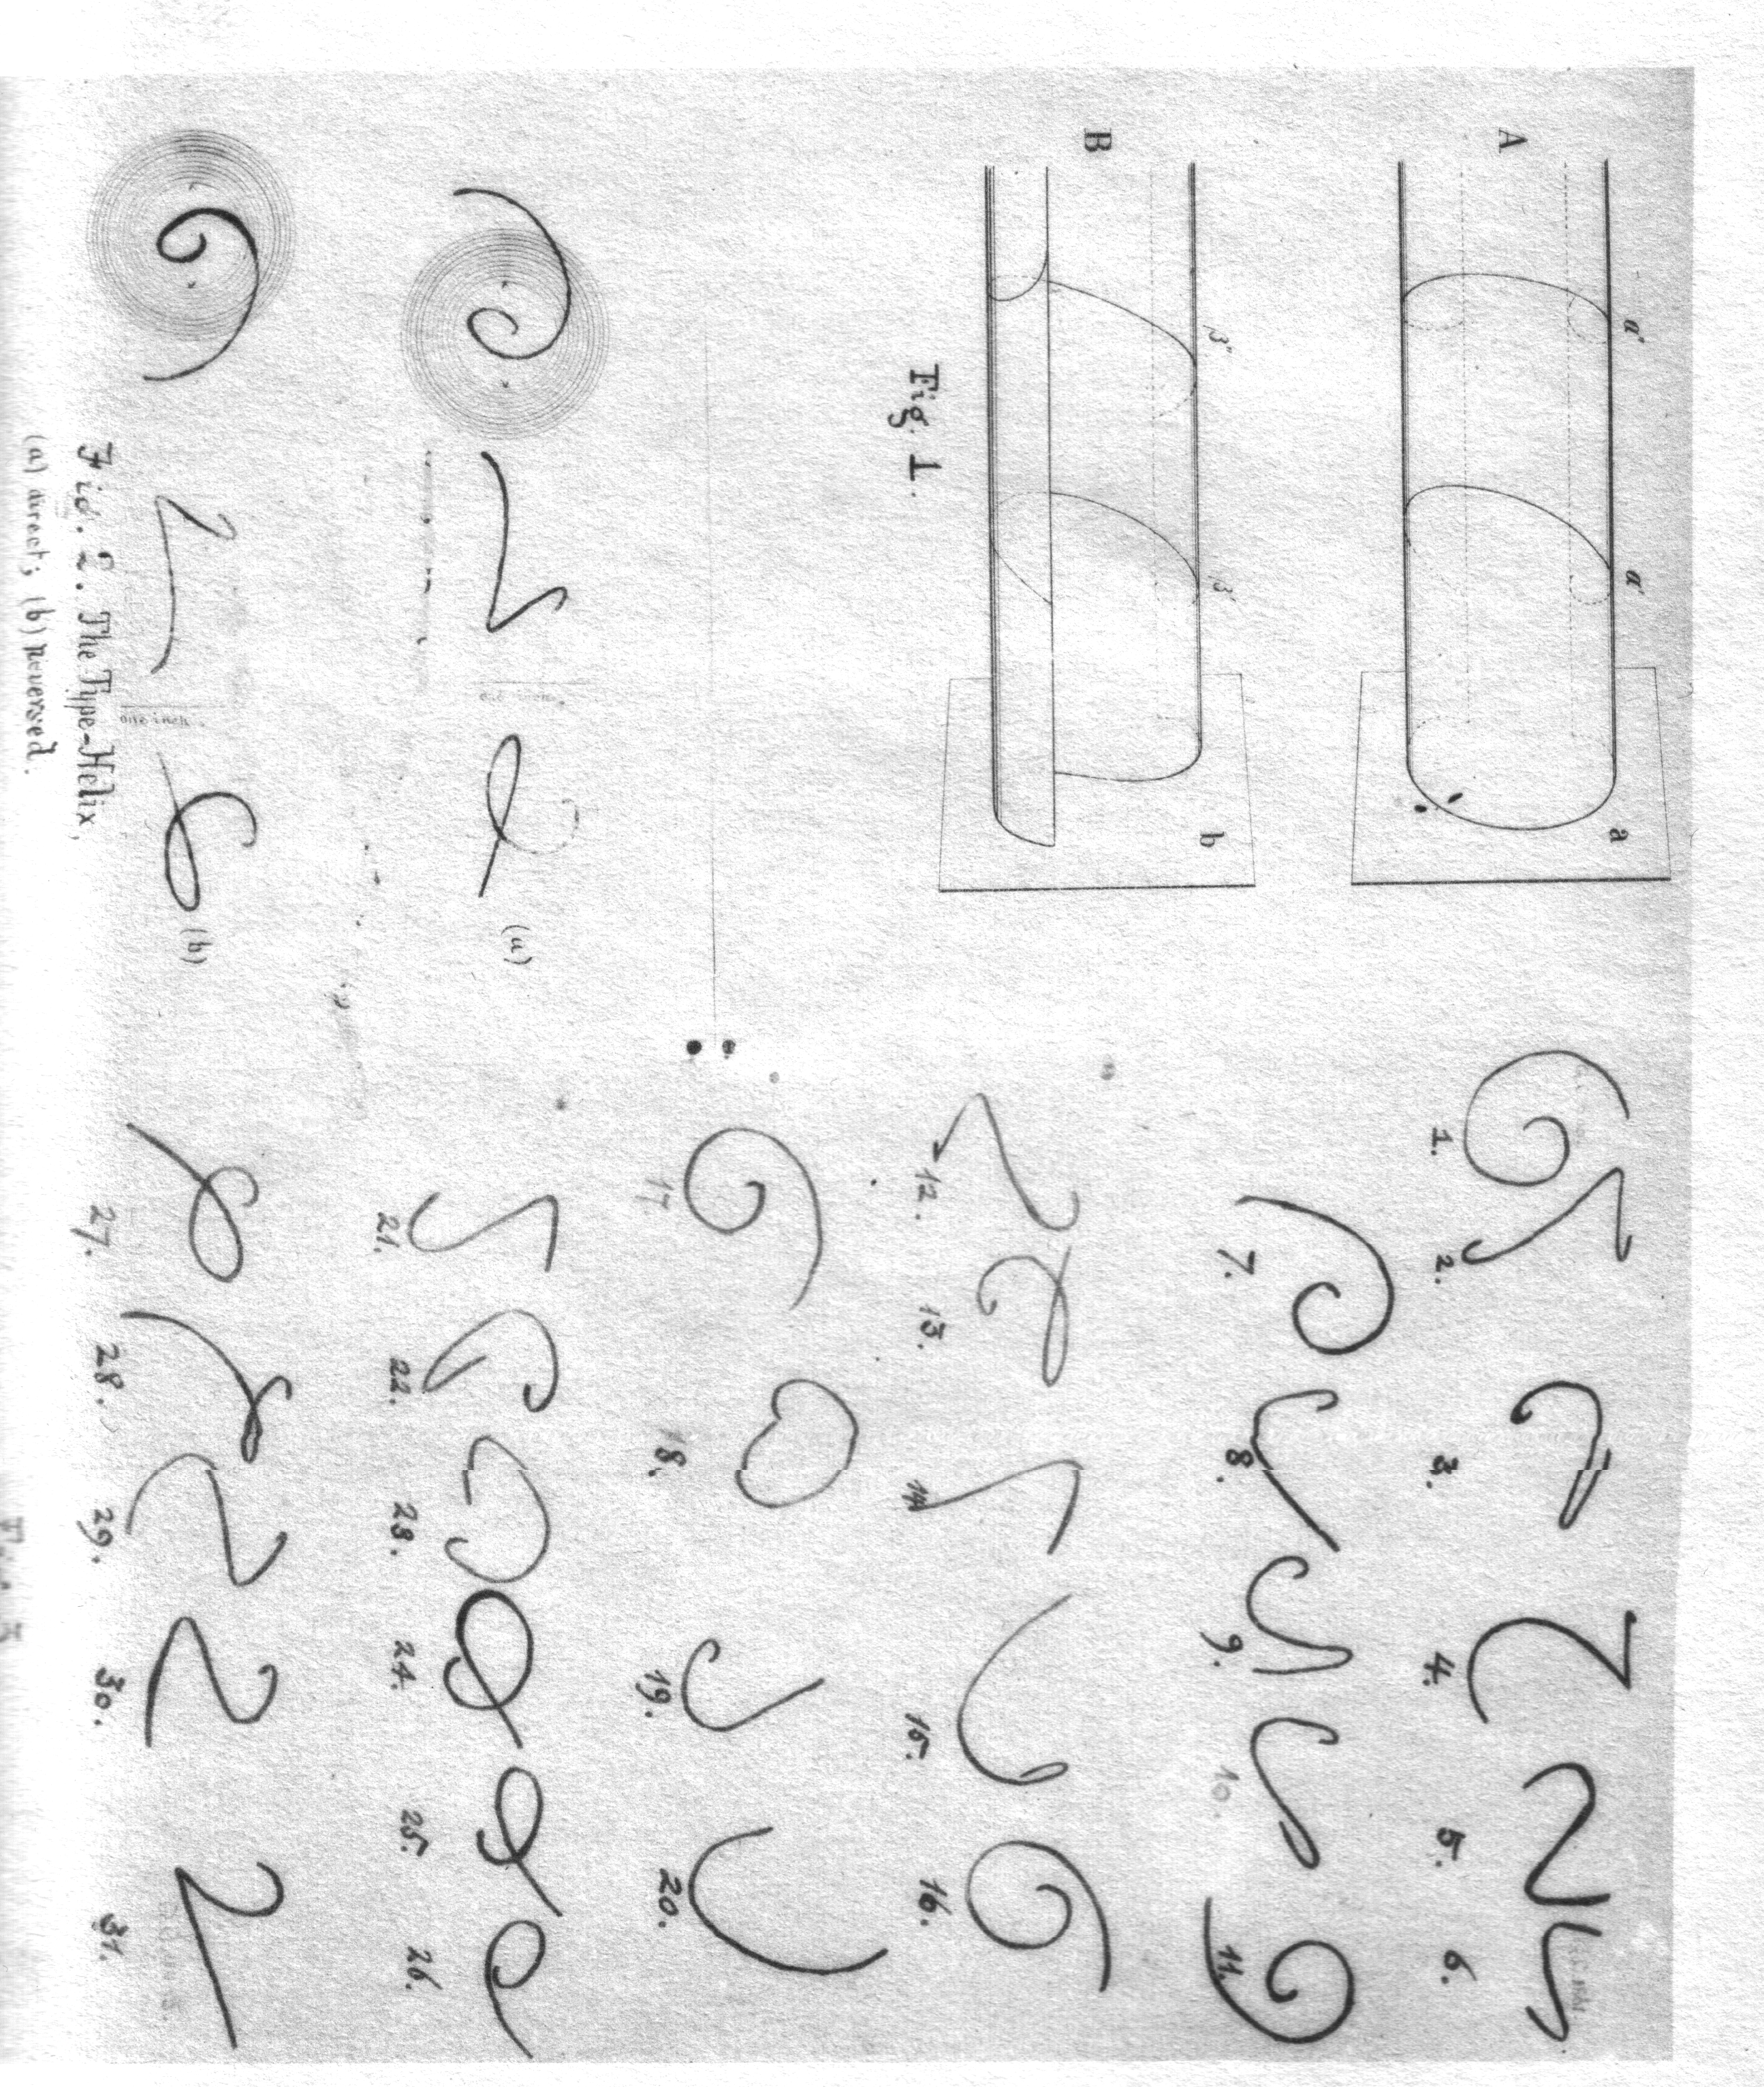 A
a"
a'
a
B
β"
β'
b
Fig. 1.
(a)
one inch.
(b)
one inch.
Fig. 2. The Type-Helix,
(a) direct; (b) Reversed.
1.
2.
3.
4.
5.
6.
7.
8.
9.
10.
11.
12.
13.
14
15.
16.
17
18.
19.
20.
21.
22.
23.
24.
25.
26.
27.
28.
29.
30.
31.